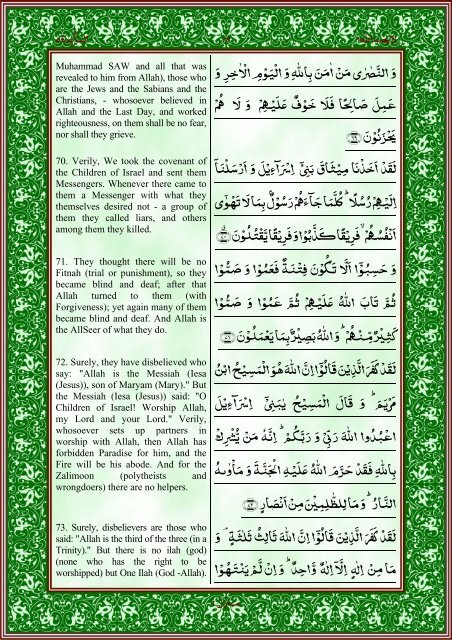 Muhammad SAW and all that was
revealed to him from Allah), those who
are the Jews and the Sabians and the
Christians, - whosoever believed in
Allah and the Last Day, and worked
righteousness, on them shall be no fear,
nor shall they grieve.
70. Verily, We took the covenant of
the Children of Israel and sent them
Messengers. Whenever there came to
them a Messenger with what they
themselves desired not - a group of
them they called liars, and others
among them they killed.
71. They thought there will be no
Fitnah (trial or punishment), so they
became blind and deaf; after that
Allah turned to them (with
Forgiveness); yet again many of them
became blind and deaf. And Allah is
the AllSeer of what they do.
72. Surely, they have disbelieved who
say: "Allah is the Messiah (Iesa
(Jesus)), son of Maryam (Mary)." But
the Messiah (Iesa (Jesus)) said: "O
Children of Israel! Worship Allah,
my Lord and your Lord." Verily,
whosoever sets up partners in
worship with Allah, then Allah has
forbidden Paradise for him, and the
Fire will be his abode. And for the
Zalimoon (polytheists and
wrongdoers) there are no helpers.
73. Surely, disbelievers are those who
said: "Allah is the third of the three (in a
Trinity)." But there is no ilah (god)
(none who has the right to be
worshipped) but One Ilah (God -Allah).
وَ النَّصٰرٰى مَنْ اٰمَنَ بِاللّٰهِ وَ الْيَوْمِ الْاٰخِرِ وَ
عَمِلَ صَالِحًا فَلَا خَوْفٌ عَلَيْهِمْ وَ لَا هُمْ
يَحْزَنُوْنَ ﴿٦٩﴾
لَقَدْ اَخَذْنَا مِيْثَاقَ بَنِيْٓ اِسْرَآءِيْلَ وَ اَرْسَلْنَاۤ
اِلَيْهِمْ رُسُلًا ؕ كُلَّمَا جَآءَهُمْ رَسُوْلٌۢ بِمَا لَا تَهْوٰٓى
اَنْفُسُهُمْ ۙ فَرِيْقًا كَذَّبُوْا وَ فَرِيْقًا يَّقْتُلُوْنَ ﴿٧٠﴾
وَ حَسِبُوْٓا اَلَّا تَكُوْنَ فِتْنَةٌ فَعَمُوْا وَ صَمُّوْا
ثُمَّ تَابَ اللّٰهُ عَلَيْهِمْ ثُمَّ عَمُوْا وَ صَمُّوْا
كَثِيْرٌ مِّنْهُمْ ؕ وَ اللّٰهُ بَصِيْرٌۢ بِمَا يَعْمَلُوْنَ ﴿٧١﴾
لَقَدْ كَفَرَ الَّذِيْنَ قَالُوْٓا اِنَّ اللّٰهَ هُوَ الْمَسِيْحُ ابْنُ
مَرْيَمَ ؕ وَ قَالَ الْمَسِيْحُ يٰبَنِيْٓ اِسْرَآءِيْلَ
اعْبُدُوا اللّٰهَ رَبِّيْ وَ رَبَّكُمْ ؕ اِنَّهٗ مَنْ يُّشْرِكْ
بِاللّٰهِ فَقَدْ حَرَّمَ اللّٰهُ عَلَيْهِ الْجَنَّةَ وَ مَاْوٰىهُ
النَّارُ ؕ وَ مَا لِلظّٰلِمِيْنَ مِنْ اَنْصَارٍ ﴿٧٢﴾
لَقَدْ كَفَرَ الَّذِيْنَ قَالُوْٓا اِنَّ اللّٰهَ ثَالِثُ ثَلٰثَةٍ ۘ وَ
مَا مِنْ اِلٰهٍ اِلَّاۤ اِلٰهٌ وَّاحِدٌ ؕ وَ اِنْ لَّمْ يَنْتَهُوْا